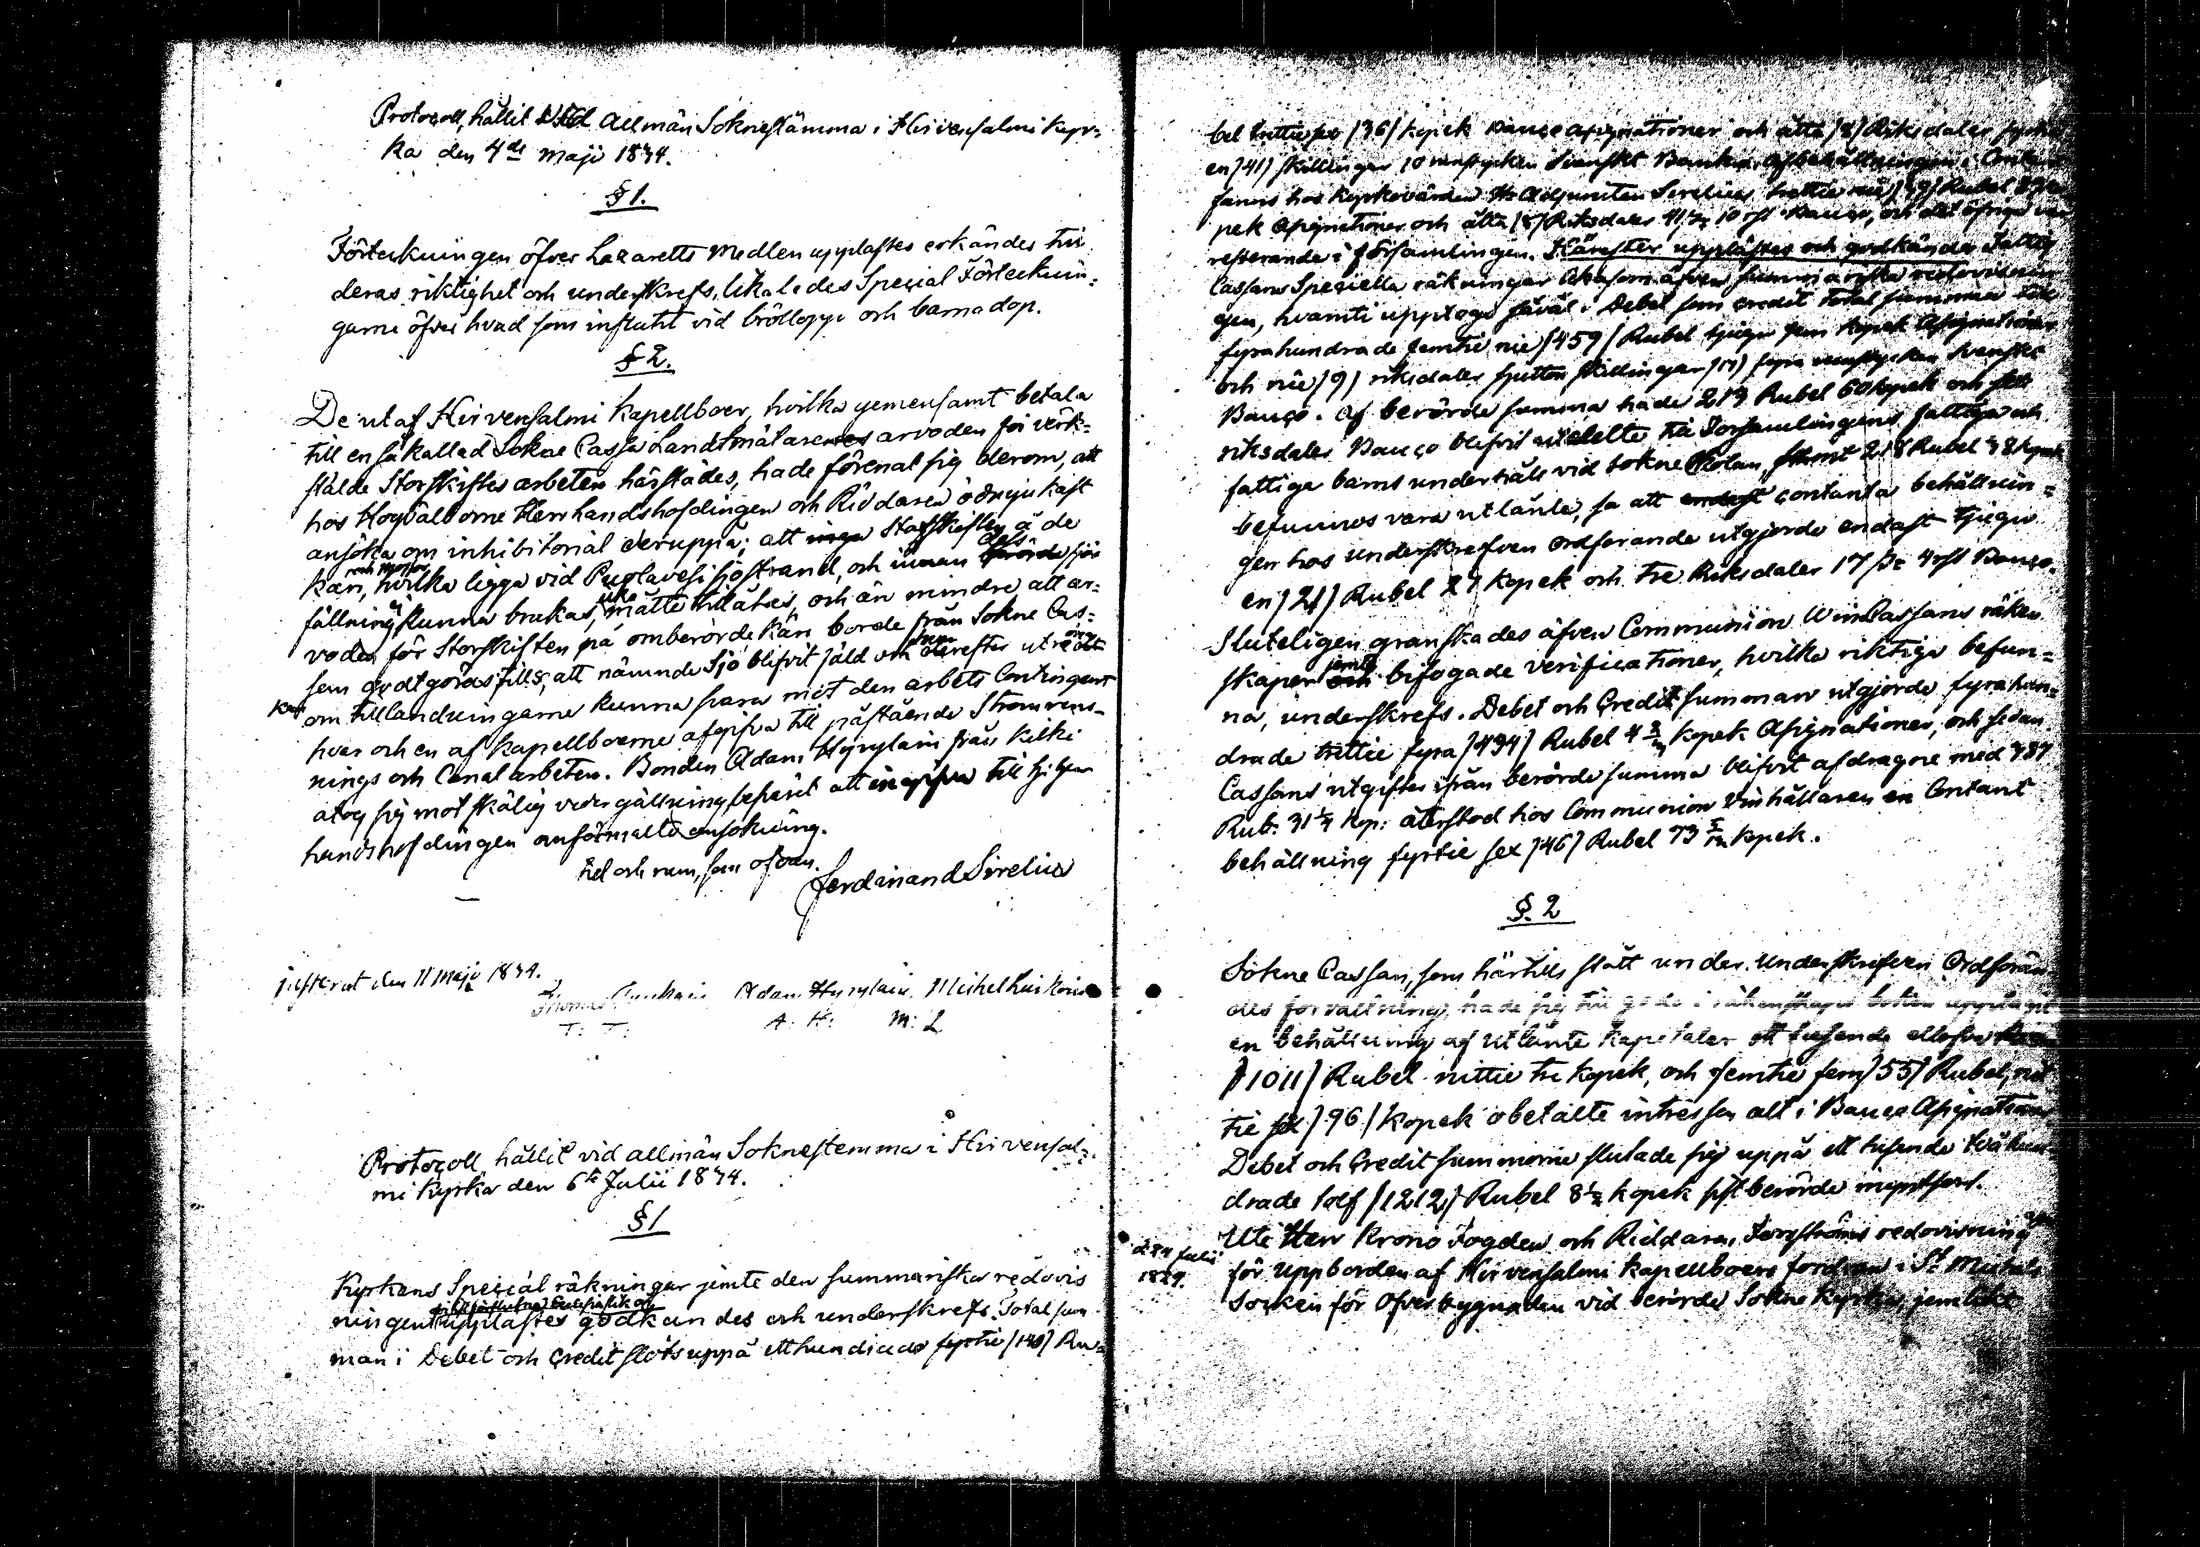 Protocoll, hållit vid Allmän Sokne stämma i Hirvensalmi kyr-
ka den 4de Maji 1834.
§ 1.
Förteckningen öfver Lazaretts Medlen upplästes erkändes till
deras riktighet och underskrefs, likaledes Special Förtecknin-
garne öfver hvad som influtit vid bröllopp och barnadop.
§ 2.
De utaf Hirvensalmi Kapellboer, hvilka gemensamt betala
till en så kallad Sokne Cassa Landtmätare arvoden för verk-
stälde Storskiftes arbeten härstädes, hade förenat sig derom, att
hos Högvälborne Herr Landshöfdingen och Riddaren ödmjukast
ansöka om inhibitorial deruppå; att inga Storskiften å de
kärr, och mossar hvilka ligga vid Puolavesi sjöstrand, och innan dess
fällning kunna brukas, måtte tillåtas, och än mindre att ar-
voden för Storskiften på omberörde kärr borde från Sokne Cas-
san godtgöras tills, att nämnde Sjö blifvit fäld och derefter utrönt
om tillandningarne kunna svara mot den arbets Contingent
hvar och en af Kapellboerne afgifva till påstående Strömrens-
nings och Canal arbeten. Bonden Adam Hyyryläin från Kilki
åtog sig mot skälig vedergällning, besväret att ingifva till
Landshöfdingen anförmälte ansökning.
tid och rum, som ofvan.
Ferdinand Sirelius
justerat den 11 Maji 1834.
Adam Hyyryläin, Michel
T: T: A: H: M: L
Protocoll, hållit vid allmän Soknestemma i Hirvensal-
mi Kyrka den 6te Julii 1834.
§ 1
Kyrkans Special räkningar jemte den summariska redovis
ningen upplästes godkändes och underskrefs. Total sum
man i Debet och Credit slöts uppå ett hundrade fyrtio /140/ Ru-
bel trettio sex /36/ kopek Banco Assignationer och åtta /8/ Riksdaler fyrtio
en /41/ skillingar 10 runstycken Svenskt Banko. Afbehållningen i Contant
fanns hos kyrkovärden Hr Adjuncten Sirelius, trettio nio /39/ Rubel
pek Assignationer och åtta /8/ Riksdaler 41 sk 10 rst Banco, och det öfriga var
resterande i församlingen. Härefter upplästes och godkändes Fattig
Cassans Speciella räkningar likasom äfven summariska redovisnin
gen, hvaruti upptogs såväl i Debet som credit total summa till
fyrahundrade femtio nio /459/ Rubel tjugu fem kopek Assignationer
och nio /9/ riksdaler sjutton skillingar /17/ fyra runstycken Svenskt
Banco. Af berörde summa hade 219 Rubel 60 kopek och sex
riksdaler Banco blifvit utdelte till Församlingens fattiga och
fattiga barns underhåll vid Sokne Skolan, samt 218 Rubel 38 kopek
befunnos vara utlånte, så att contanta behållnin-
gen hos underskrefven ordförande utgjorde endast tjugu
en /21/ Rubel 27 kopek och tre Riksdaler 17 sk 4 rst Banco.
Sluteligen granskades äfven Communion Wins Cassans räken
skaper jemte bifogade verificationer, hvilka riktiga befun-
na, underskrefs. Debet och Credit summan utgjorde fyrahun-
drade trettio fyra /434/ Rubel 4 3/7 kopek Assignationer, och sedan
Cassans utgifter ifrån berörde summa blifvit afdragne med 387
Rub. 31 1/7 kop: återstod hos Communion Vinhållaren en Contant
behållning fyrtio sex /46/ Rubel 73 2/7 kopek.
§. 2
Sokne Cassan, som härtills stått under Underskrefven Ordföran
des förvaltning, hade sig till godo i räkenskaps boken upptagit
en behållning af utlånte Kapitaler ett tusende ellofva
/1011/ Rubel nittio tre kopek, och femtio fem /55/ Rubel, nit
tio sex /96/ kopek obetalte intressen alt i Banco Assignationer
Debet och Credit summorne slutade sig uppå ett tusende tvåhun-
drade tolf /1212/ Rubel 8 1/2 kopek sist berörde myntsort.
Uti Herr Krono Fogden och Riddaren Forsströms redovisning
d. 24 Julii
1829.
för uppbörden af Hirvensalmi Kapellboers fordran i St Michels
Socken för Öfverbygnaden vid berörde Sokne Kyrka, jemlikt